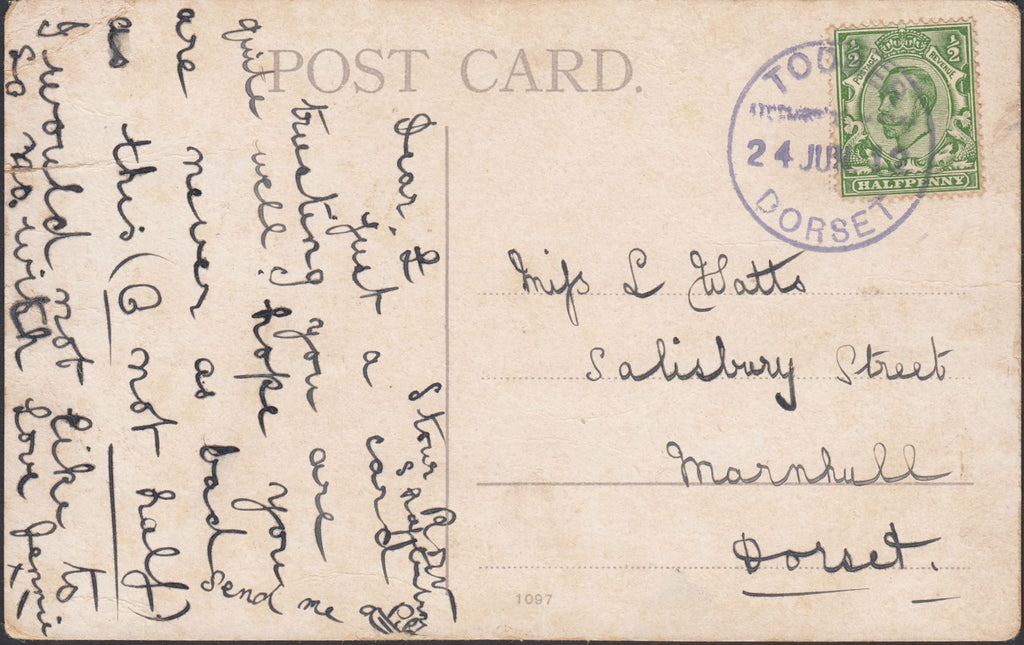 POST CARD.
½
½
POSTAGE
REVENUE
HALFPENNY
24 JUN 12
DORSET
Stour Row
Dear. L
Just a card
trusting you are
quite well. hope you
are never as bad
as this (O not half)
send me
I would not like to
So no. with Love Jennie
x
Miss L Watts
Salisbury Street
Marnhull
Dorset.
1097